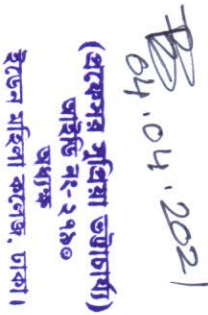 04.04.2021
(প্রফেসর সুপ্রিয়া ভট্টাচার্য্য)
আইডি নং- ২৭৯০
অধ্যক্ষ
ইডেন মহিলা কলেজ, ঢাকা।